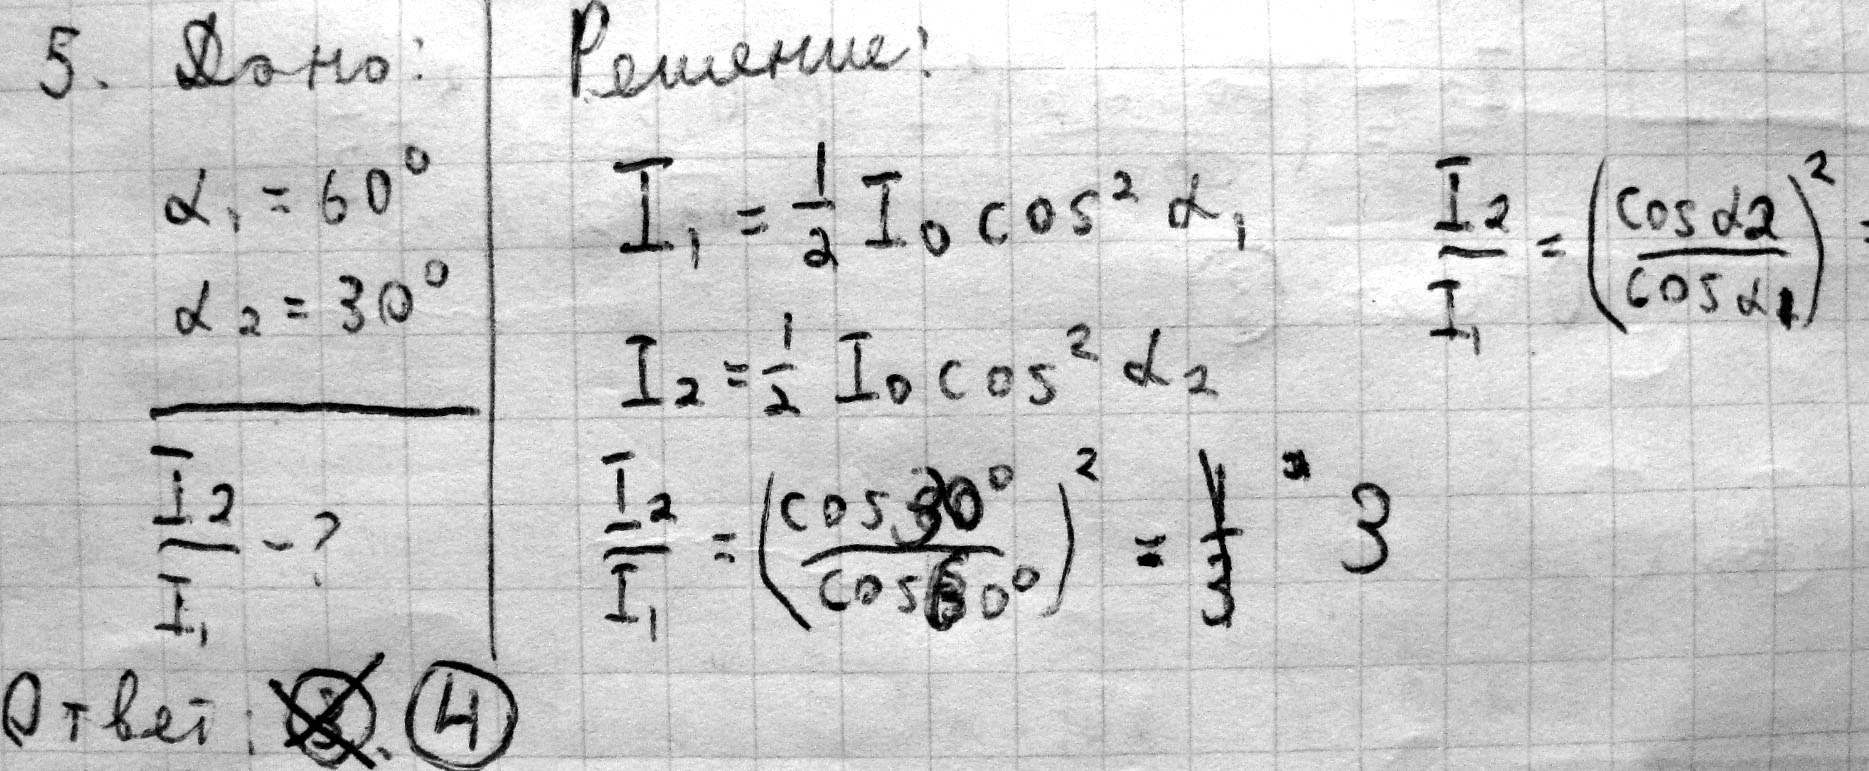 5. Дано:
α₁ = 60⁰
α₂ = 30⁰
I₂/I₁ - ?
Решение:
I₁ = 1/2 I₀ cos² α₁
I₂ = 1/2 I₀ cos² α₂
I₂/I₁ = (cos 30⁰/cos 60⁰)² = 3
I₂/I₁ = (cos α2/cos α1)² =
Ответ: 4